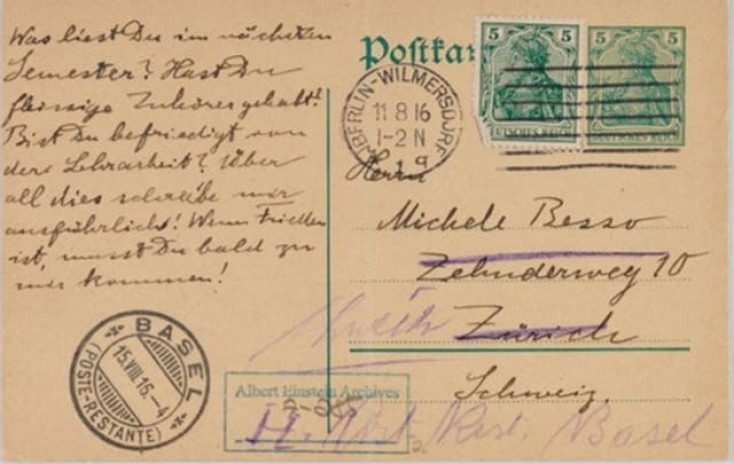 Was liest Du im nächsten
Semester? Hast Du
fleissige Zuhörer gehabt?
Bist Du befriedigt von
der Lehrarbeit? Über
all dies schreibe mir
ausführlich! Wenn Frieden
ist, musst Du bald zu
mir kommen!
Postkar
5 5
5 5
DEUTSCHES REICH
BERLIN-WILMERSDORF
11 8 16
1-2 N
Herrn
Michele Besso
Zehnderweg 10
Zürich
Schweiz.
BASEL
15.VIII.16.-4
(POSTE-RESTANTE)
Albert Einstein Archives
Rest. Basel